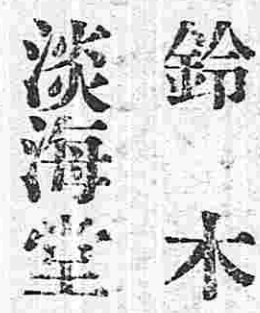 鈴木
淡海堂